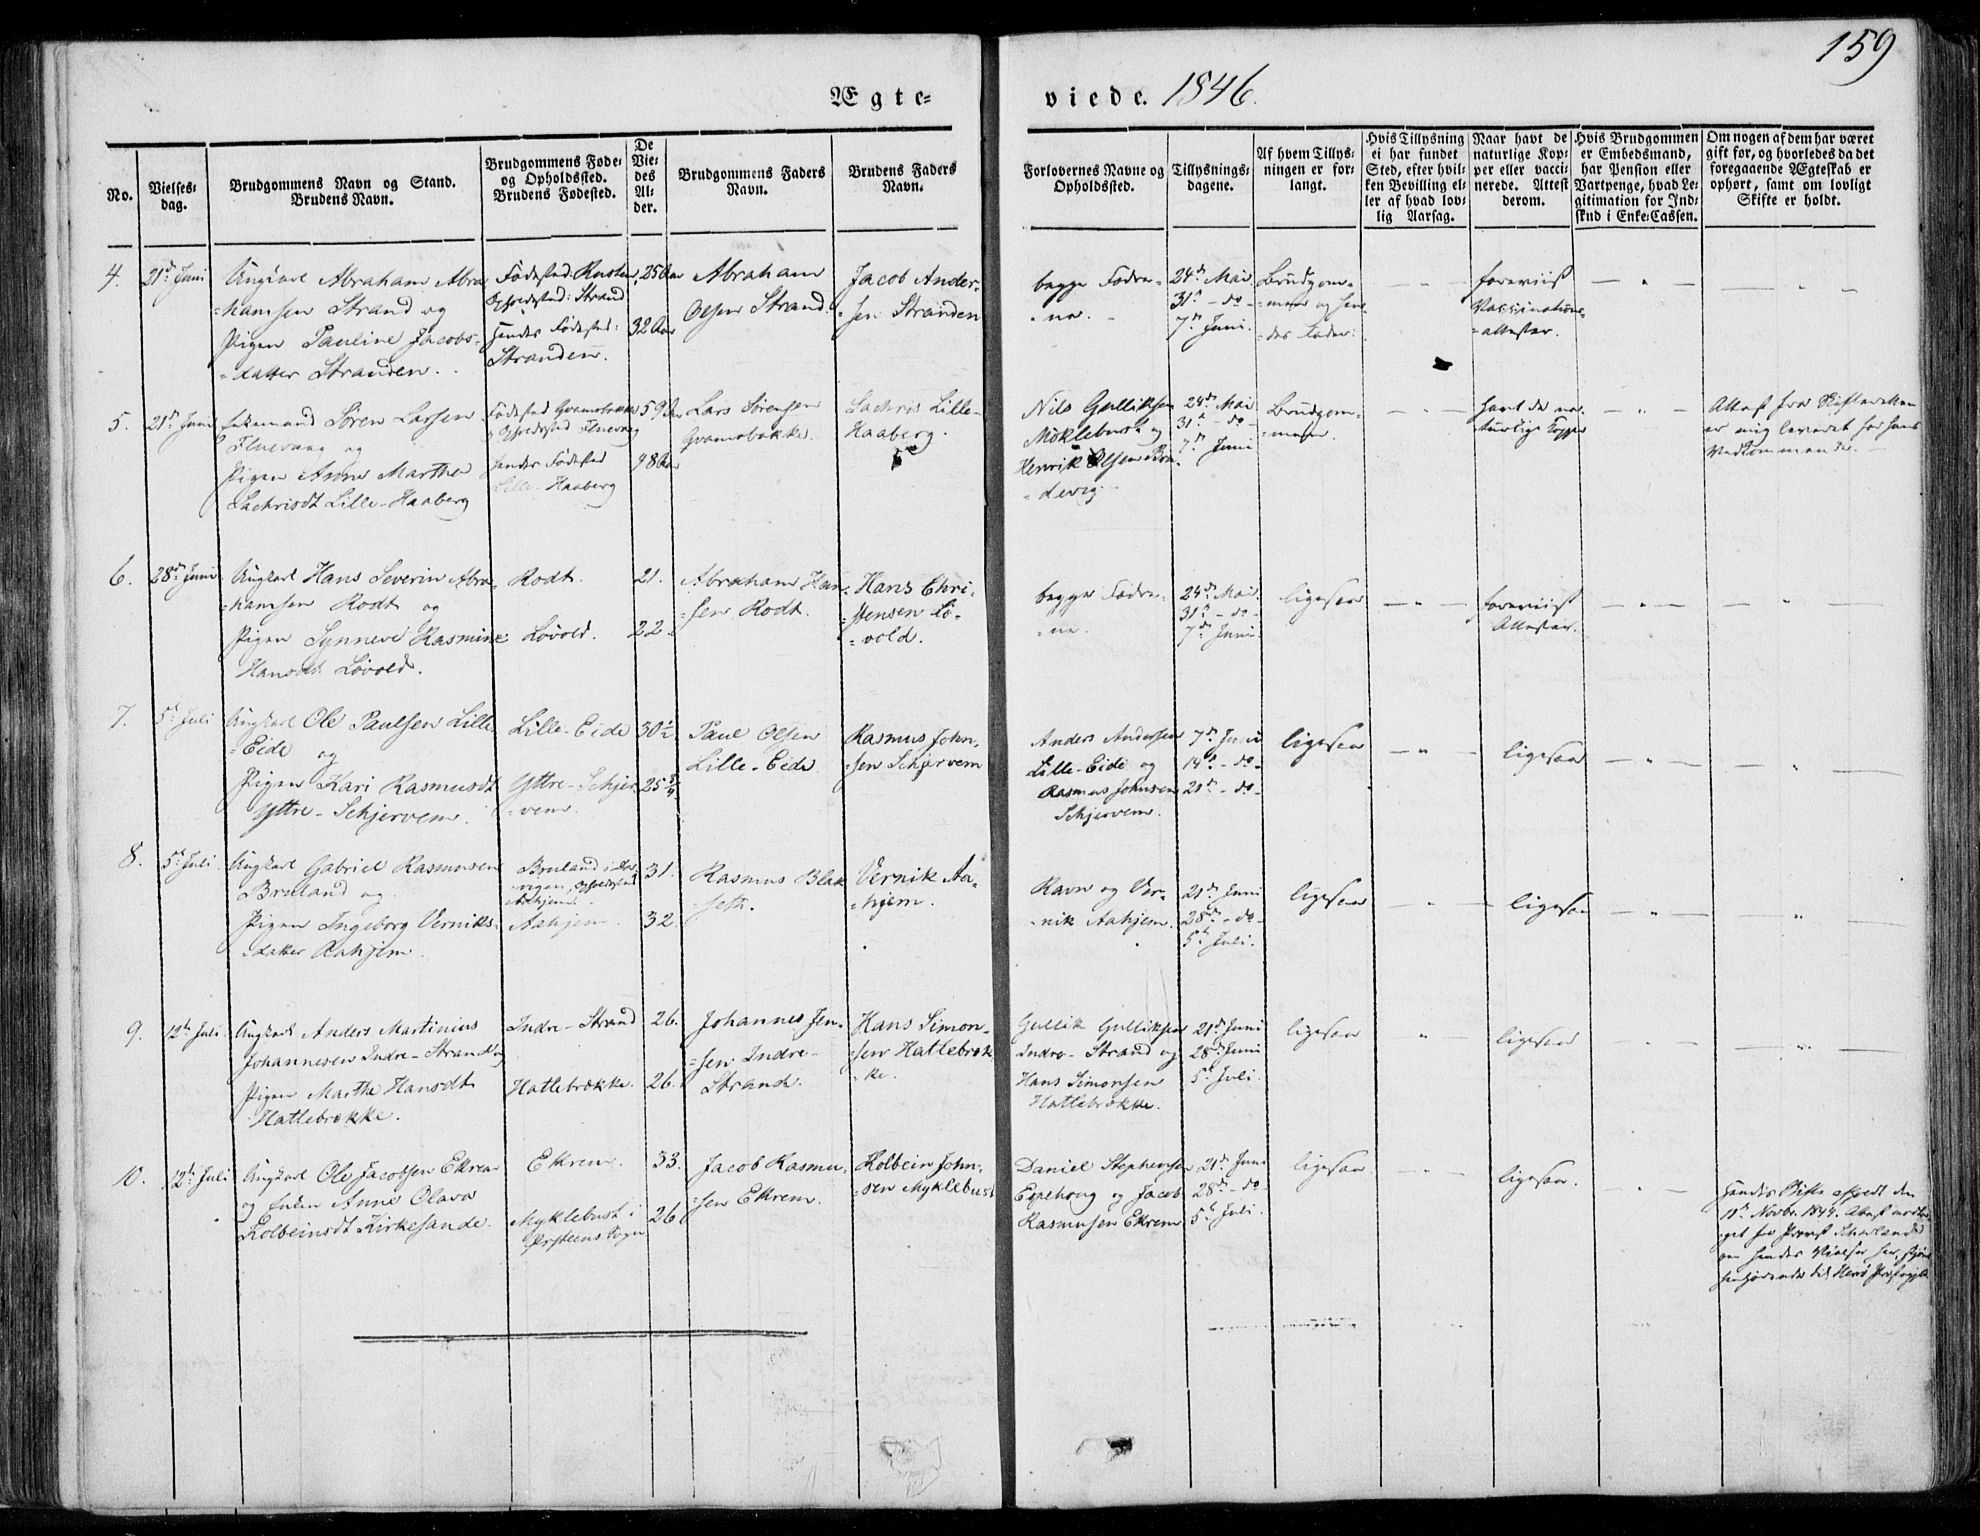 159
Ægte=
viede. 1846.
No.
Vielses=
dag.
Brudgommens Navn og Stand.
Brudens Navn.
Brudgommens Føde=
og Opholdssted.
Brudens Fødested.
De
Vie=
des
Al=
der.
Brudgommens Faders
Navn.
Brudens Faders
Navn.
Forlovernes Navne og
Opholdsted.
Tillysnings=
dagene.
Af hvem Tillys=
ningen er for=
langt.
Hvis Tillysning
ei har fundet
Sted, efter hvil=
ken Bevilling el=
ler af hvad lov=
lig Aarsag.
Naar havt de
naturlige Kop=
per eller vacci=
nerede. Attest
derom.
Hvis Brudgommen
er Embedsmand,
har Pension eller
Vartpenge, hvad Le=
gitimation for Ind=
skud i Enke=Cassen.
Om nogen af dem har været
gift før, og hvorledes da det
foregaaende Ægteskab er
ophørt, samt om lovligt
Skifte er holdt.
4.
21de Juni
Ungkarl Abraham Abra
=hamsen Strand og
Pigen Pauline Jacobs=
=datter Stranden.
Fødested:
Opholdsted: Strand
Hendes Fødested:
Stranden.
25 Aar
32 Aar
Abraham
Olsen Strand.
Jacob Ander=
=sen Stranden
begge Fædre=
=ne.
24de Mai
31te - do -
7de Juni.
Brudgom=
=men og hen
=des Fader.
foreviist
Vaccinations=
=attester.
5.
21de Juni
Enkemand Søren Larsen
Fluevaag og
Pigen Anne Marthe
Sachrisdt Lille-Haaberg
Fødested Gvamsbakke
Opholdsted Fluevaag
Hendes Fødested
Lille-Haaberg
59 Aar
48 Aar
Lars Sørensen
Gvamsbakke.
Sachris Lille-
Haaberg.
Nils Gulliksen
Möklebust og
Henrik Olsen
=devig.
24de Mai
31te - do -
7de Juni
Brudgom=
=men.
havt de na=
turlige Kopper
Attest fra Skifteretten
er mig leveret fra hans
Vedkommende.
6.
28de Juni
Ungkarl Hans Severin Abra=
=hamsen Rodt og
Pigen Synneve Rasmine
Hansdt. Løvold.
Rodt.
Løvold.
21.
22.
Abraham Han=
=sen Rodt.
Hans Chri=
=stensen Lø=
=vold.
begge Fædre=
=ne.
24de Mai.
31te - do -
7de Juni.
ligesaa
foreviist
Attester.
7.
5te Juli
Ungkarl Ole Paulsen Lille
=Eide og
Pigen Kari Rasmusdt
Yttre-Schjervem.
Lille-Eide
Yttre-Schjer
=vem.
30½
25¾
Paul Olsen
Lille-Eide
Rasmus John=
=sen Schjervem
Anders Andersen
Lille-Eide og
Rasmus Johnsen
Schjervem.
7de Juni
14de - do -
21de - do -
ligesaa
ligesaa
8.
5te Juli
Ungkarl Gabriel Rasmusen
Bruland og
Pigen Ingeborg Verniks=
=datter Aahjem.
Bruland i
Aahjem.
31.
32.
Rasmus Blak
=seth.
Vernik Aa=
=hjem.
Ravn og Ver=
=nik Aahjem.
21de Juni
28de - do -
5te Juli.
ligesaa
ligesaa
9.
12te Juli
Ungkarl Anders Martinius
Johannesen Indre-Strand og
Pigen Marthe Hansdt
Hattebrekke.
Indre-Strand
Hatlebrekke.
26.
26.
Johannes Jen=
=sen Indre-
Strand.
Hans Simon=
=sen Hatlebrek
=ke.
Gullik Gulliksen
Indre-Strand og
Hans Simonsen
Hatlebrekke.
21de Juni
28de Juni
5te Juli.
ligesaa
ligesaa
10.
12te Juli
Ungkarl Ole Jacobsen Ekrem
og Enken Anne Olava
Kolbeinsdt Kirkesande.
Ekrem.
Myklebust i
Ørsteens Sogn
33.
26.
Jacob Rasmu=
=sen Ekrem.
Kolbein John=
=sen Myklebust
Daniel Stephensen
Espehoug og Jacob
Rasmusen Ekrem
21de Juni
28de - do -
5te Juli.
ligesaa.
ligesaa.